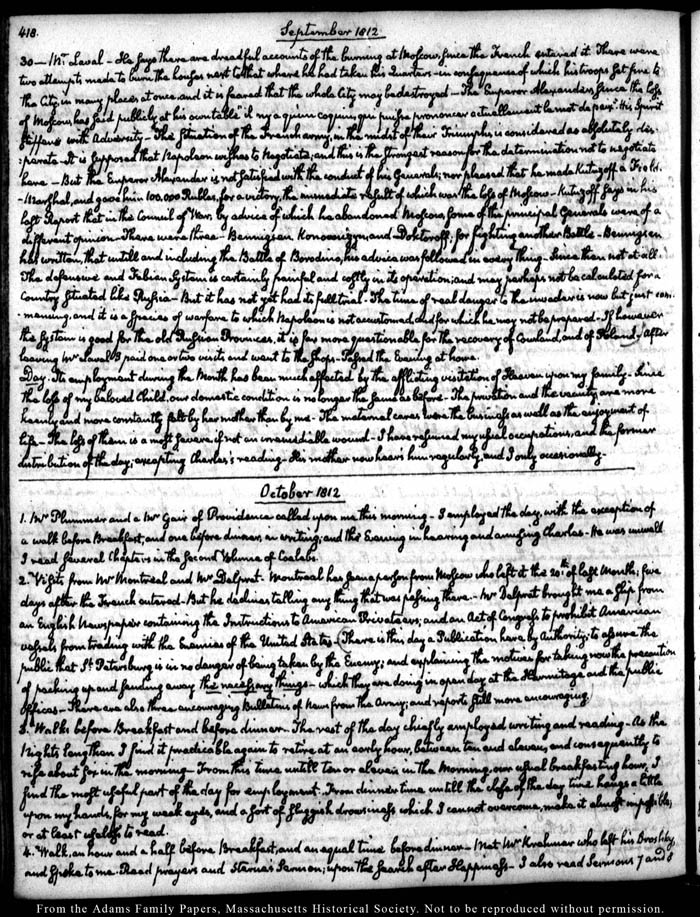 418.
September 1812
30 — Mr Laval - He says there are dreadful accounts of the burning at Moscow, since the French entered it. There were
two attempts made to burn the houses next to that where he had taken his Quarters - in consequence of which his troops set fire to
the City in many places at once and it is feared that the whole City may be destroyed - The Emperor Alexander, since the loss
of Moscow, has said publicly at his own table "il n'y a qu'un coquin, qui puisse prononcer actuellement le mot de paix." His Spirit
stiffens with Adversity - The situation of the French army, in the midst of their Triumphs, is considered as absolutely des-
-perate - It is supposed that Napoleon wishes to Negotiate, and this is the strongest reason for the determination not to negotiate
here. - But the Emperor Alexander is not satisfied with the conduct of his Generals; nor pleased that he made Kutuzoff a Field-
-Marshal, and gave him 100,000 Rubles, for a victory, the immediate result of which was the loss of Moscow - Kutuzoff says in his
last Report that in the Council of War, by advice of which he abandoned Moscow, some of the principal Generals were of a
different opinion - There were three - Bennigsen Konovnizyn, and Doktoroff, for fighting another Battle - Bennigsen
has written, that untill and including the Battle of Borodino, his advice was followed in every thing - Since then not at all.
The defensive and Fabian System is certainly painful and costly in its operation; and may perhaps not be calculated for a
Country situated like Russia - But it has not yet had its full trial. The time of real danger to the invader is now but just com-
mencing, and it is a species of warfare to which Napoleon is not accustomed, and for which he may not be prepared - If however
the System is good for the old Russian Provinces, it is far more questionable for the recovery of Courland, and of Poland. After
leaving Mr Laval I paid one or two visits and went to the Shops. Passed the Evening at home.
Day. Its employment during the Month has been much affected by the afflicting visitation of Heaven upon my family. Since
the loss of my beloved Child, our domestic condition is no longer the same as before - The privation and the vacuity are more
heavily and more constantly felt by her mother than by me - The maternal cares were the business as well as the enjoyment of
life - The loss of them is a most severe, if not an irremediable wound - I have resumed my usual occupations, and the former
distribution of the day; excepting Charles's reading - His mother now hears him regularly, and I only occasionally.
October 1812
1. Mr Plummer and a Mr Gair of Providence called upon me this morning - I employed the day, with the exception of
a walk before Breakfast, and one before dinner, in writing, and the Evening in hearing and amusing Charles - He was unwell
I read several Chapters in the Second Volume of Coelebs.
2. Visits from Mr Montreal and Mr Dalprat. Montreal has seen a person from Moscow who left it the 20th of last Month; five
days after the French entered - But he declines talking any thing that was passing there. - Mr Dalprat brought me a slip from
an English Newspaper containing the Instructions to American Privateers; and an Act of Congress to prohibit American
vessels from trading with the Enemies of the United States - There is this day a Publication here by Authority; to assure the
public that St Petersburg is in no danger of being taken by the Enemy; and explaining the motives for taking now the precaution
of packing up and sending away the necessary things - which they are doing in open day at the Hermitage and the public
offices - There are also three encouraging Bulletins of News from the Army; and reports still more encouraging.
3. Walks before Breakfast and before dinner. The rest of the day chiefly employed writing and reading - As the
Nights lengthen I find it practicable again to retire at an early hour, between ten and eleven, and consequently to
rise about six in the morning - From this time untill ten or eleven in the Morning, our usual breakfasting hour, I
find the most useful part of the day for employment. From dinner time untill the close of the day time hangs a little
upon my hands, for my weak eyes, and a sort of sluggish drowsiness which I cannot overcome, make it almost impossible,
or at least useless to read.
4. Walk, an hour and a half before Breakfast, and an equal time before dinner - Met Mr Krehmer who left his Droshky,
and spoke to me. Read prayers and Sterne's Sermon; upon the search after Happiness - I also read Sermons 7 and 8
From the Adams Family Papers, Massachusetts Historical Society. Not to be reproduced without permission.